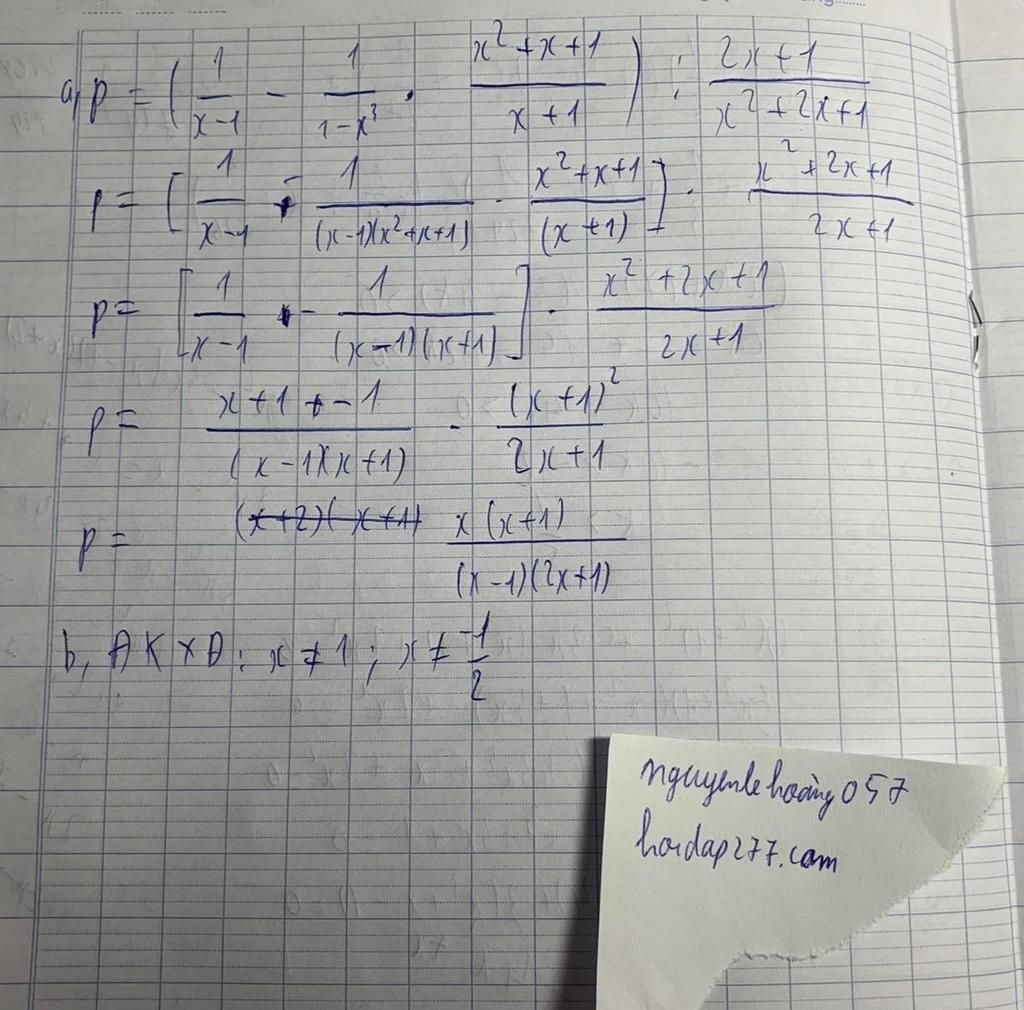 a, P = ( 1/(x-1) - 1/(1-x³) . (x²+x+1)/(x+1) ) : (2x+1)/(x²+2x+1)
P = [ 1/(x-1) - 1/((x-1)(x²+x+1)) . (x²+x+1)/(x+1) ] . (x²+2x+1)/(2x+1)
P = [ 1/(x-1) - 1/((x-1)(x+1)) ] . (x²+2x+1)/(2x+1)
P = (x+1-1)/((x-1)(x+1)) . (x+1)²/(2x+1)
P = x(x+1)/((x-1)(2x+1))
b, ĐKXĐ: x ≠ 1; x ≠ -1/2
nguyenlehoang057
hoidap277.com